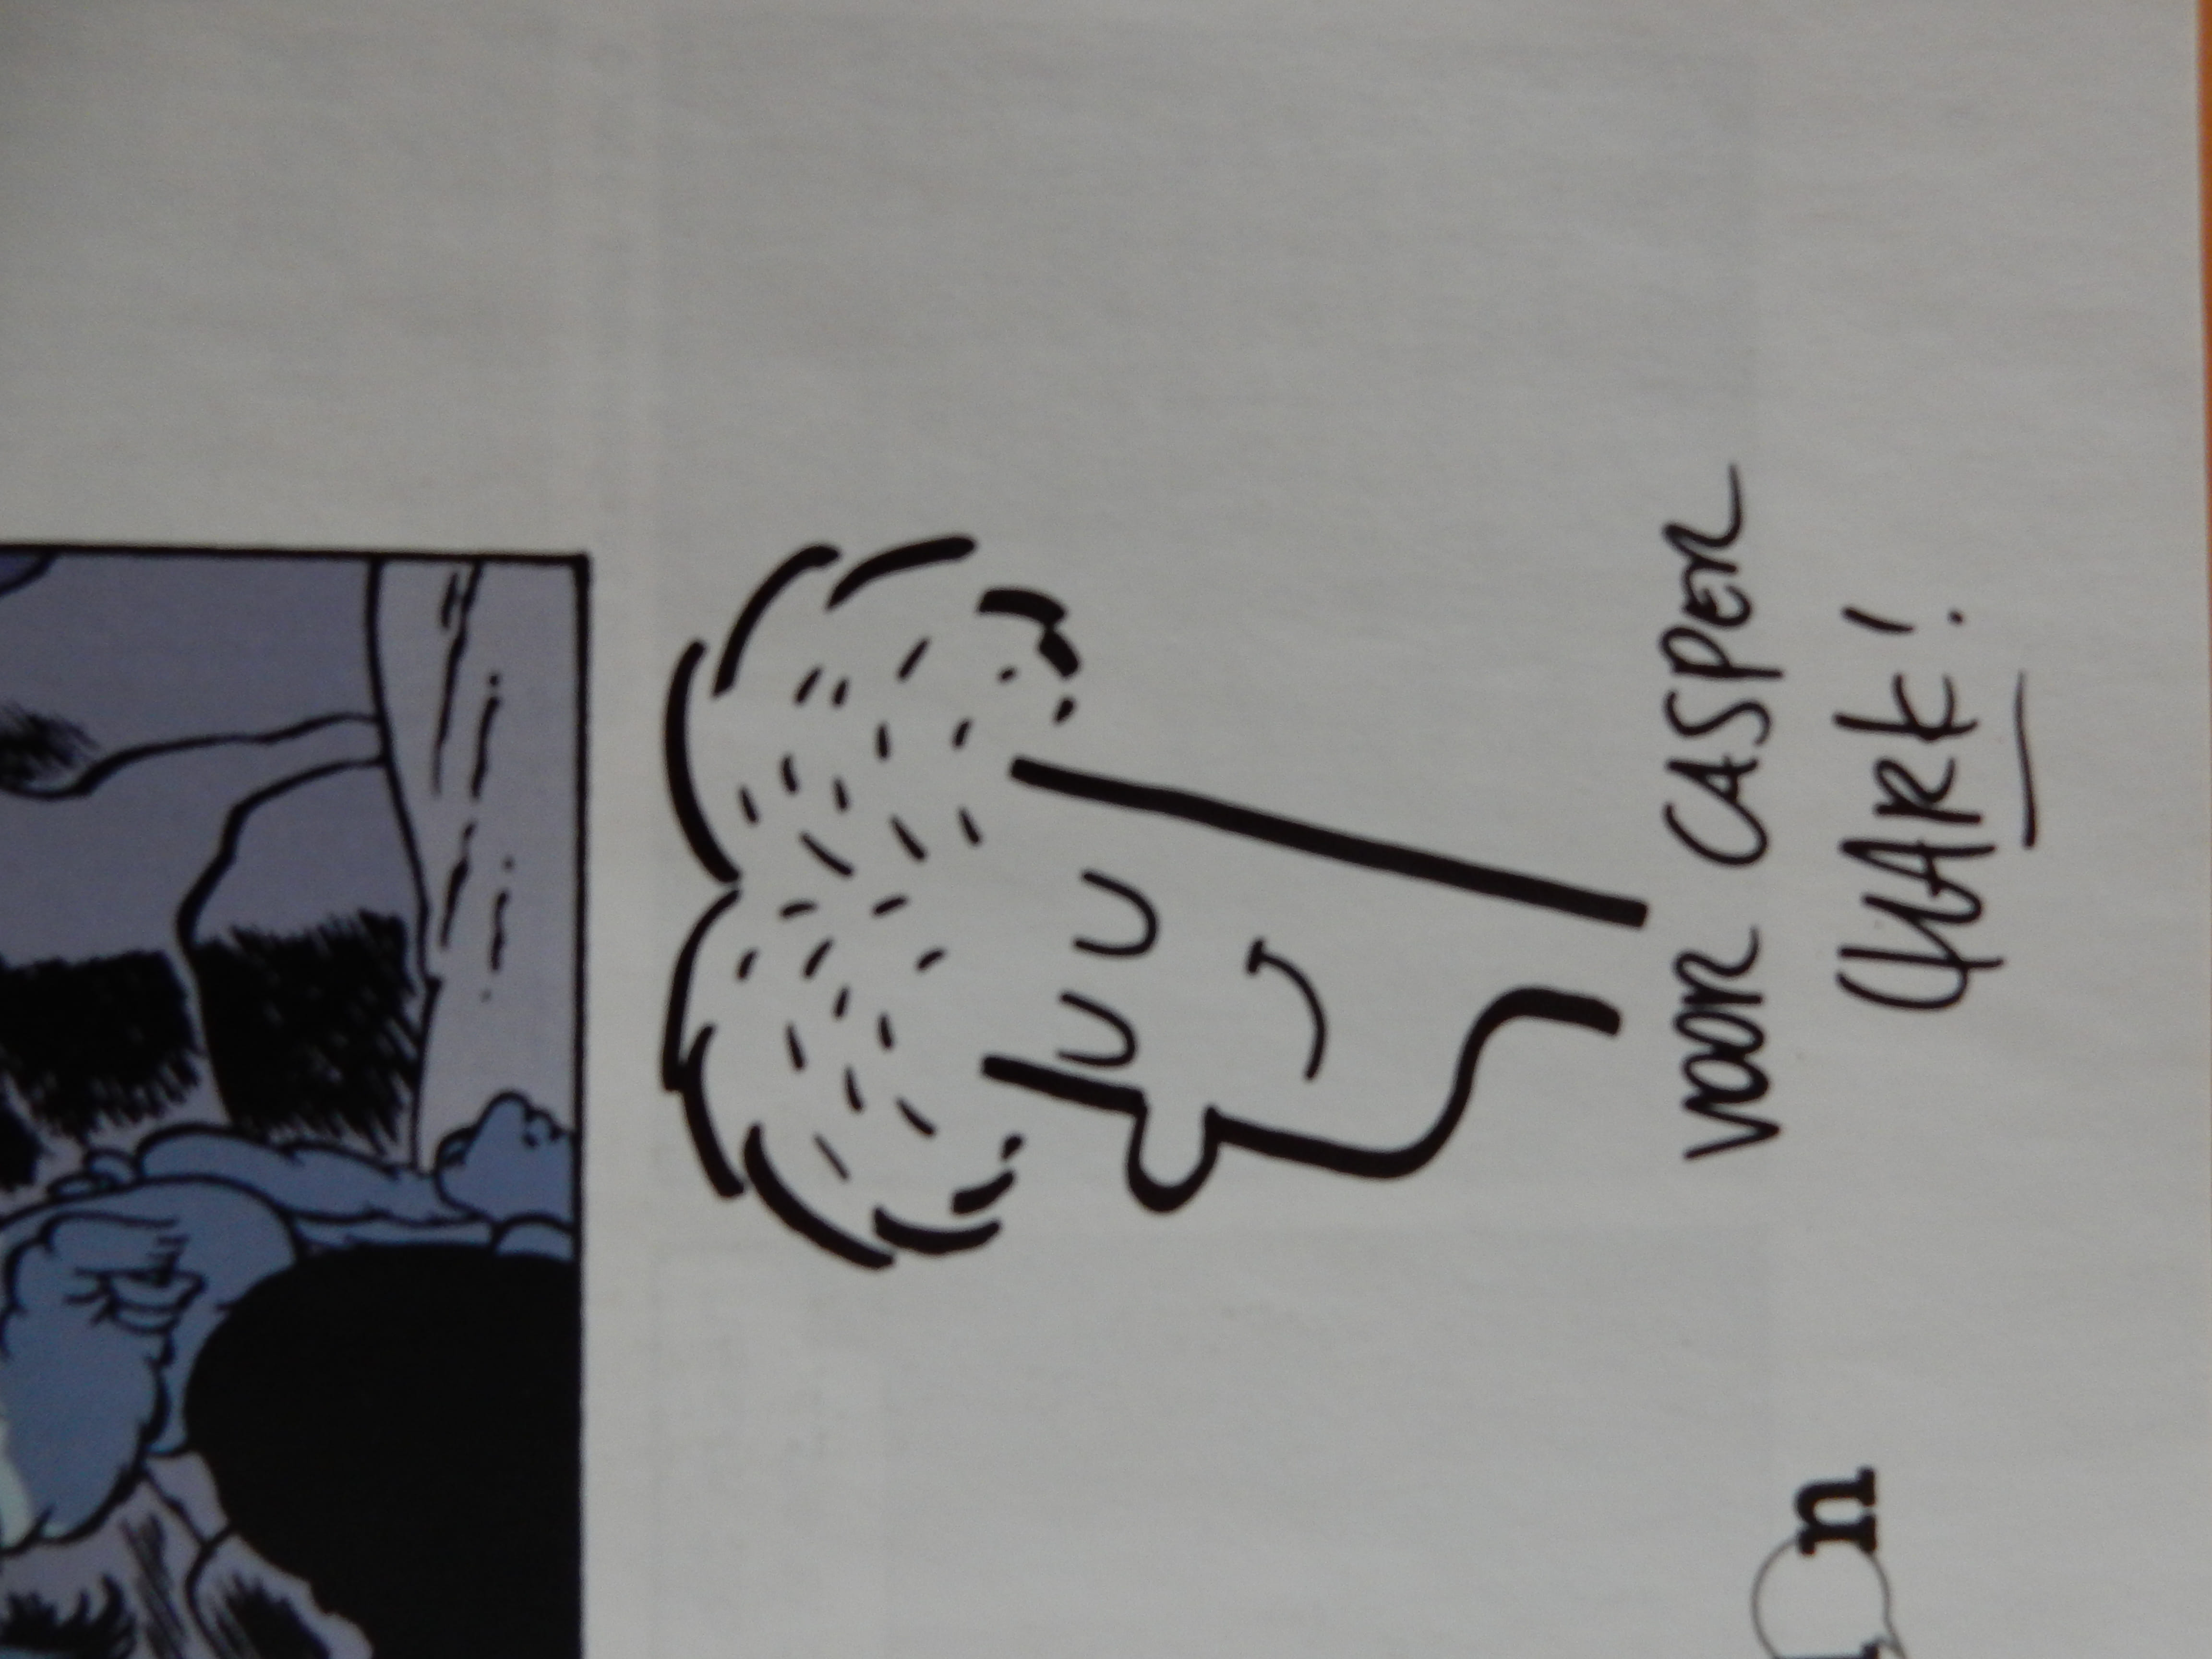 VOOR CASPER
QUARK!
n